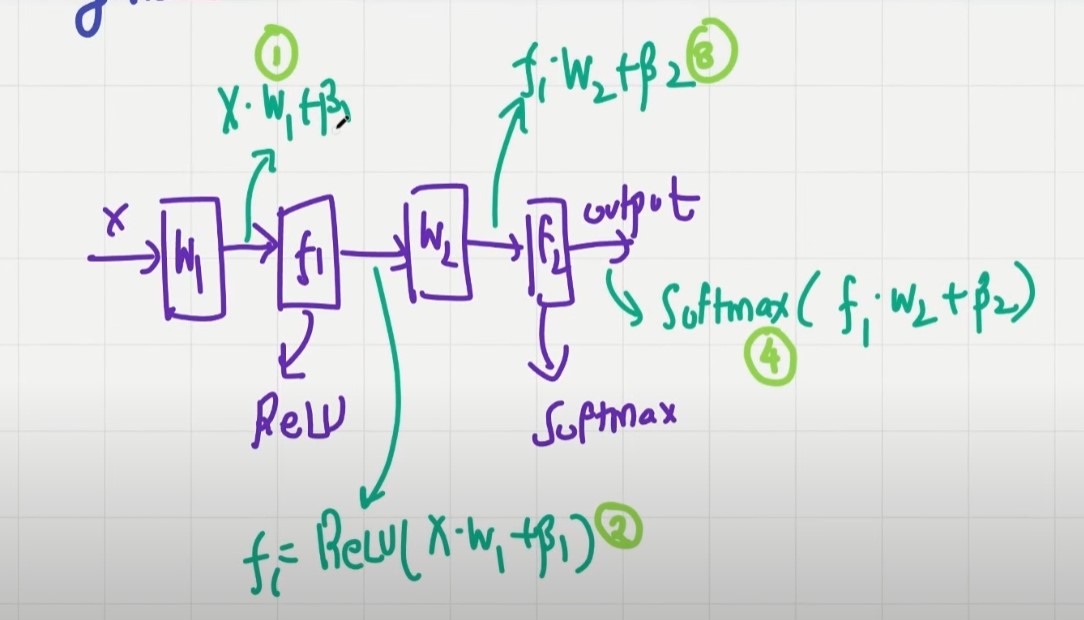 ①
X·W₁+β₁
f₁·W₂+β₂ ③
X
W₁
f₁
W₂
f₂
output
Softmax( f₁·W₂+β₂)
④
ReLU
Softmax
f₁= ReLU( X·W₁+β₁) ②